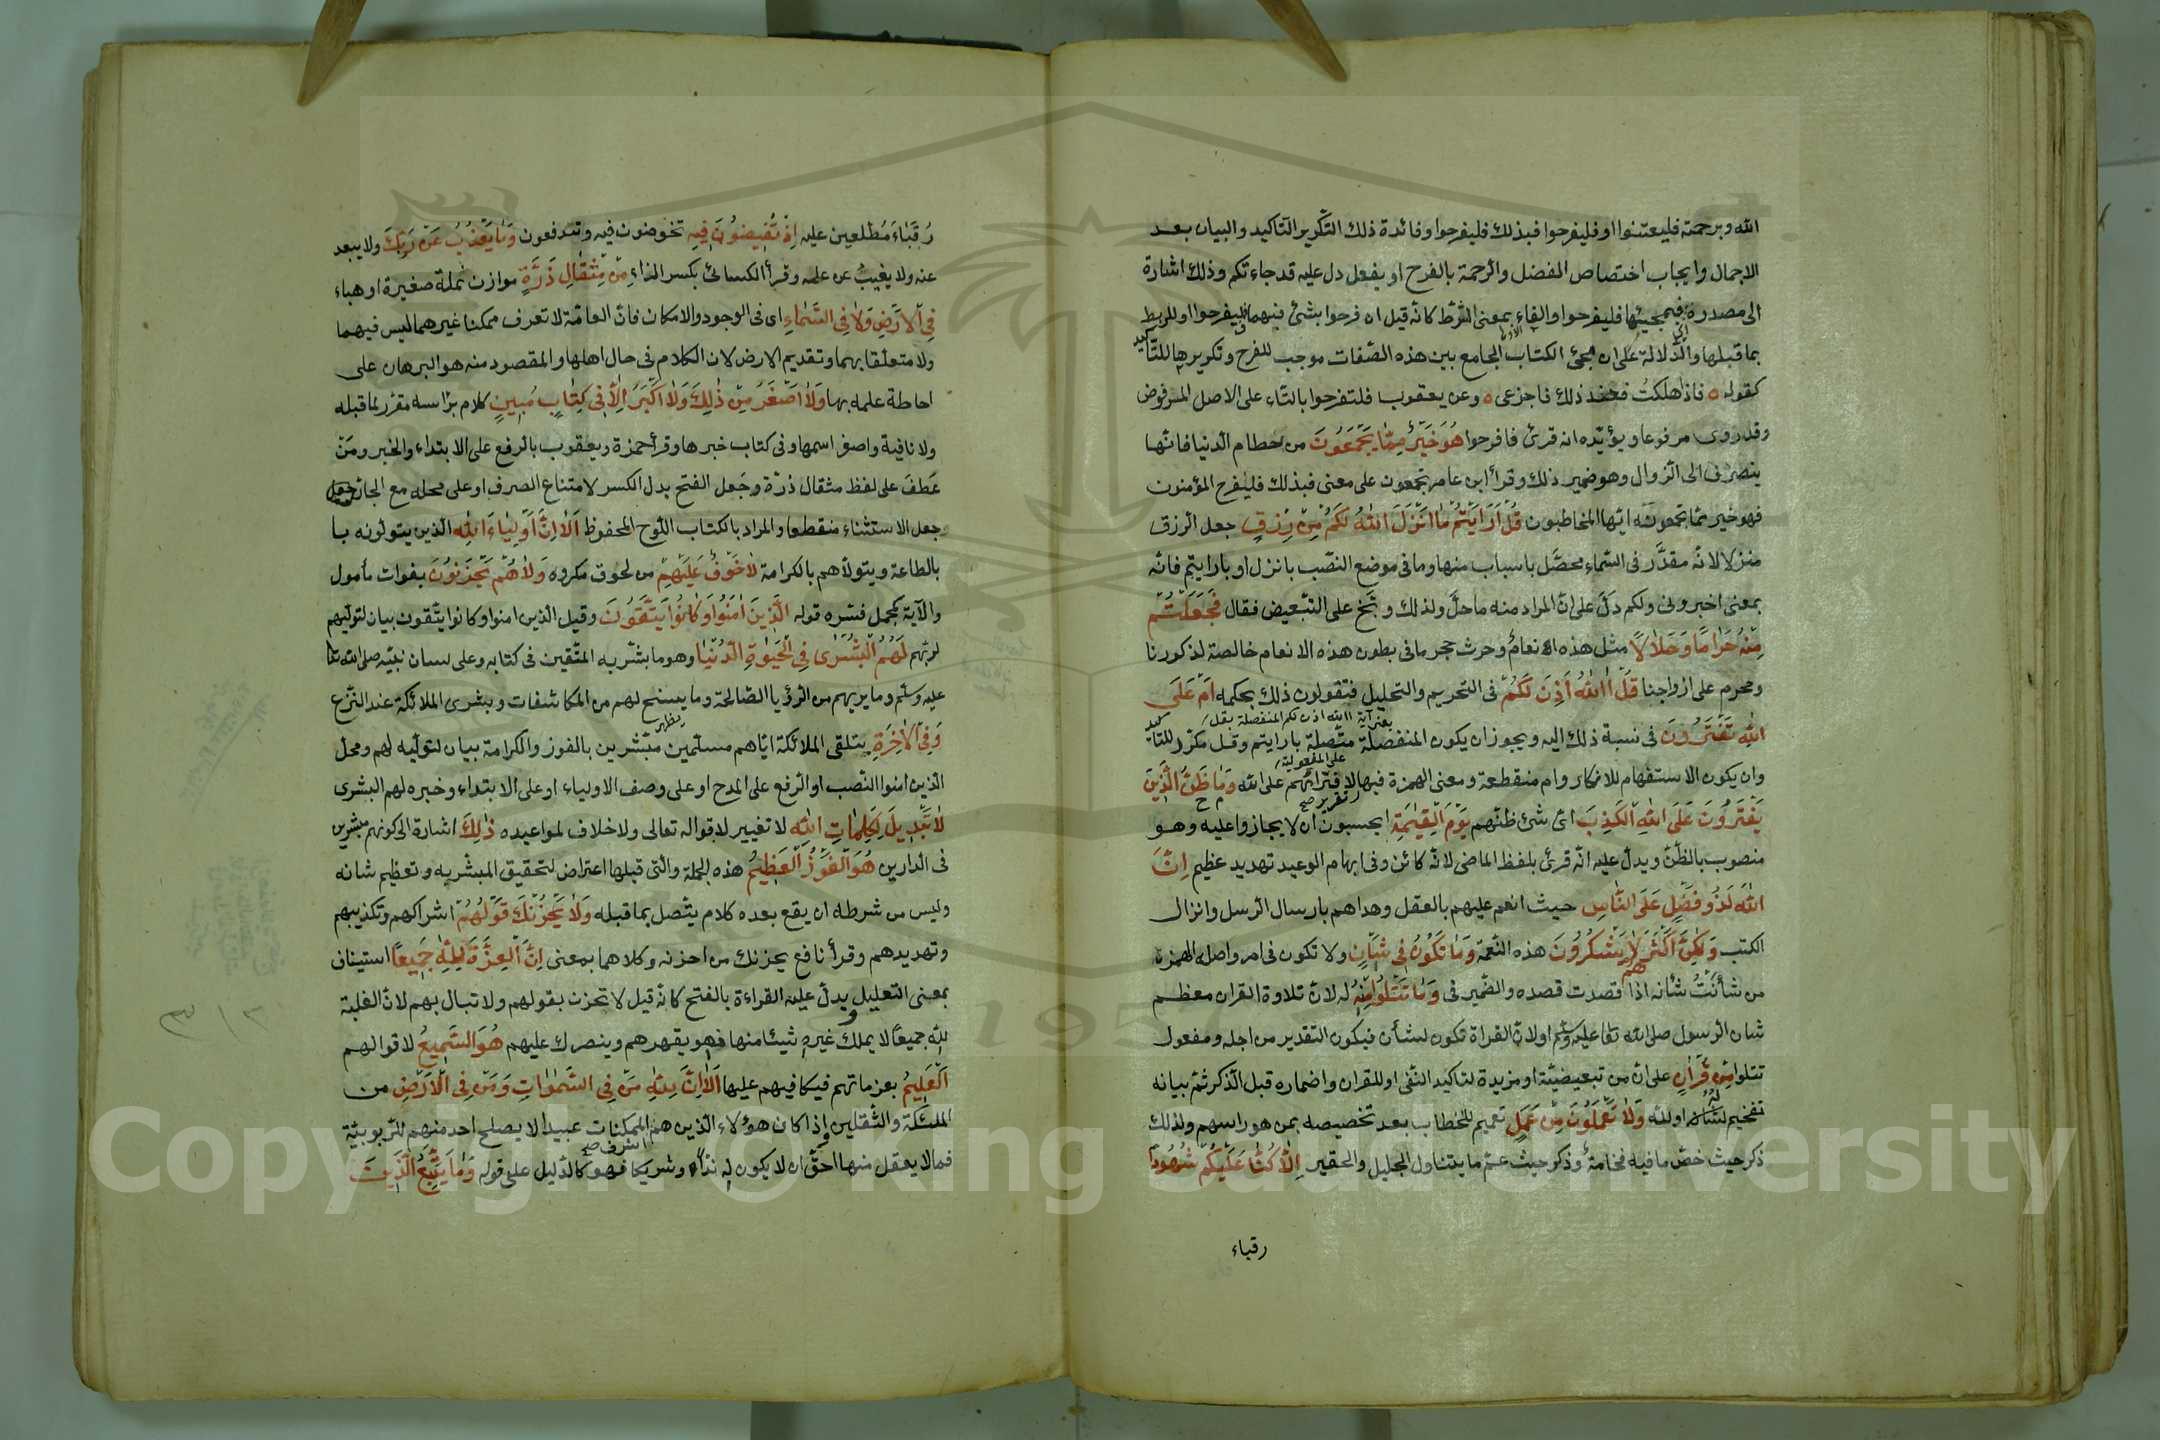 الله وبرحمته فليعتنوا او فليفرحوا فبذلك فليفرحوا وفائدة ذلك التكرير التأكيد والبيان بعد
الاجمال وايجاب اختصاص الفضل والرحمة بالفرح او بفعل دل عليه قد جاءتكم وذلك اشارة
الى مصدره فبمجيئها فليفرحوا والفاء بمعنى الشرط كانه قيل ان فرحوا بشئ فبهما فليفرحوا او للربط
بما قبلها والدلالة على ان مجئ الكتاب الجامع بين هذه الصفات موجب للفرح وتكريرها للتاكيد
كقوله ٥ فاذا هلكت فعند ذلك فاجزعى ٥ وعن يعقوب فلتفرحوا بالتاء على الاصل المرفوض
وقد روى مرفوعا ويؤيده انه قرئ فافرحوا هُوَ خَيْرٌ مِمَّا يَجْمَعُونَ من حطام الدنيا فانها
الى الزوال وهو ضمير ذلك وقرأ ابن عامر تجمعون على معنى فبذلك فليفرح المؤمنون
فهو خير مما تجمعونه ايها المخاطبون قُلْ اَرَاَيْتُمْ مَا اَنْزَلَ اللهُ لَكُمْ مِنْ رِزْقٍ جعل الرزق
منزلا لانه مقدر فى السماء محصل باسباب منها وما فى موضع النصب بانزل او بارايتم فانه
بمعنى اخبرونى ولكم دل على ان المراد منه ما حل ولذلك وبخ على التبعيض فقال فَجَعَلْتُمْ
مِنْهُ حَرَامًا وَحَلَالًا مثل هذه انعام وحرث حجر ما فى بطون هذه الانعام خالصة لذكورنا
ومحرم على ازواجنا قُلْ اَاللهُ اَذِنَ لَكُمْ فى التحريم والتحليل فتقولون ذلك بحكمه اَمْ عَلَى
اللهِ تَفْتَرُونَ فى نسبة ذلك اليه ويجوز ان يكون المنفصلة متصلة بارايتم وقل مكرر للتاكيد
وان يكون الاستفهام للانكار وام منقطعة ومعنى الهمزة فيها لافترائهم على الله وَمَا ظَنُّ الَّذِينَ
يَفْتَرُونَ عَلَى اللهِ الْكَذِبَ اى شئ ظنهم يَوْمَ الْقِيٰمَةِ ايحسبون ان لا يجازوا عليه وهو
منصوب بالظن ويدل عليه انه قرئ بلفظ الماضى لانه كائن وفى ابهام الوعيد تهديد عظيم اِنَّ
اللهَ لَذُو فَضْلٍ عَلَى النَّاسِ حيث انعم عليهم بالعقل وهداهم بارسال الرسل وانزال
الكتب وَلٰكِنَّ اَكْثَرَهُمْ لَا يَشْكُرُونَ هذه النعمة وَمَا تَكُونُ فِى شَأْنٍ ولا تكون فى امر واصله الهمزة
من شأنت شأنه اذا قصدت قصده والضمير فى وَمَا تَتْلُوا مِنْهُ له لان تلاوة القران معظم
شان الرسول صلى الله تعا عليه وسلم او لان القراة تكون لشأن فيكون التقدير من اجله ومفعول
تتلوا مِنْ قُرْاٰنٍ على ان من تبعيضية او مزيدة لتاكيد النفى او للقران واضماره قبل الذكر ثم بيانه
تفخيم له او لله وَلَا تَعْمَلُونَ مِنْ عَمَلٍ تعميم للخطاب بعد تخصيصه بمن هو راسهم ولذلك
ذكر حيث خص ما فيه فخامة وذكر حيث عم ما يتناول الجليل والحقير اِلَّا كُنَّا عَلَيْكُمْ شُهُودًا
رقباء
رُقَبَاءَ مُطلعين عليه اِذْ تُفِيضُونَ فِيهِ تخوضون فيه وتندفعون وَمَا يَعْزُبُ عَنْ رَبِّكَ ولا يبعد
عنه ولا يغيب عن علمه وقرأ الكسائى بكسر الزاء مِنْ مِثْقَالِ ذَرَّةٍ موازن نملة صغيرة او هباء
فِى الْاَرْضِ وَلَا فِى السَّمَاءِ اى فى الوجود والامكان فان العامة لا تعرف ممكنا غيرهما ليس فيهما
ولا متعلقا بهما وتقديم الارض لان الكلام فى حال اهلها والمقصود منه هو البرهان على
احاطة علمه بها وَلَا اَصْغَرُ مِنْ ذٰلِكَ وَلَا اَكْبَرُ اِلَّا فِى كِتَابٍ مُبِينٍ كلام براسه مقرر لما قبله
ولا نافية واصغر اسمها وفى كتاب خبرها وقرأ حمزة ويعقوب بالرفع على الابتداء والخبر ومن
عطف على لفظ مثقال ذرة وجعل الفتح بدل الكسر لامتناع الصرف او على محله مع الجار
وجعل الاستثناء منقطعا والمراد بالكتاب اللوح المحفوظ اَلَا اِنَّ اَوْلِيَاءَ اللهِ الذين يتولونه با
بالطاعة ويتولاهم بالكرامة لَا خَوْفٌ عَلَيْهِمْ من لحوق مكروه وَلَا هُمْ يَحْزَنُونَ بفوات مأمول
والآية كمجمل فسره قوله الَّذِينَ اٰمَنُوا وَكَانُوا يَتَّقُونَ وقيل الذين امنوا وكانوا يتقون بيان لتوليهم
لربهم لَهُمُ الْبُشْرٰى فِى الْحَيٰوةِ الدُّنْيَا وهو ما بشر به المتقين فى كتابه وعلى لسان نبيه صلى الله تعا
عليه وسلم وما يريهم من الرؤيا الصالحة وما يسنح لهم من المكاشفات وبشرى الملائكة عند النزع
وَفِى الْاٰخِرَةِ بتلقى الملائكة اياهم مسلمين مبشرين بالفوز والكرامة بيان لتوليه لهم ومحل
الذين امنوا النصب او الرفع على المدح او على وصف الاولياء او على الابتداء وخبره لهم البشرى
لَا تَبْدِيلَ لِكَلِمَاتِ اللهِ لا تغيير لاقواله تعالى ولا خلاف لمواعيده ذٰلِكَ اشارة الى كونهم مبشرين
فى الدارين هُوَ الْفَوْزُ الْعَظِيمُ هذه الجملة والتى قبلها اعتراض لتحقيق المبشر به وتعظيم شانه
وليس من شرطه ان يقع بعده كلام يتصل بما قبله وَلَا يَحْزُنْكَ قَوْلُهُمْ اشراكهم وتكذيبهم
وتهديدهم وقرأ نافع يحزنك من احزنه وكلاهما بمعنى اِنَّ الْعِزَّةَ لِلّٰهِ جَمِيعًا استيناف
بمعنى التعليل ويدل عليه القراءة بالفتح كانه قيل لا تحزن بقولهم ولا تبال بهم لان الغلبة
لله جميعا لا يملك غيره شيئا منها فهو يقهرهم وينصرك عليهم هُوَ السَّمِيعُ لاقوالهم
الْعَلِيمُ بعزماتهم فيكافيهم عليها اَلَا اِنَّ لِلّٰهِ مَنْ فِى السَّمٰوَاتِ وَمَنْ فِى الْاَرْضِ من
الملئكة والثقلين واذا كان هؤلاء الذين هم اشرف الممكنات عبيدا لا يصلح احد منهم للربوبية
فما لا يعقل منها احق ان لا يكون له ندا وشريكا فهو كالدليل على قوله وَمَا يَتَّبِعُ الَّذِينَ
Copyright © King Saud University
1957